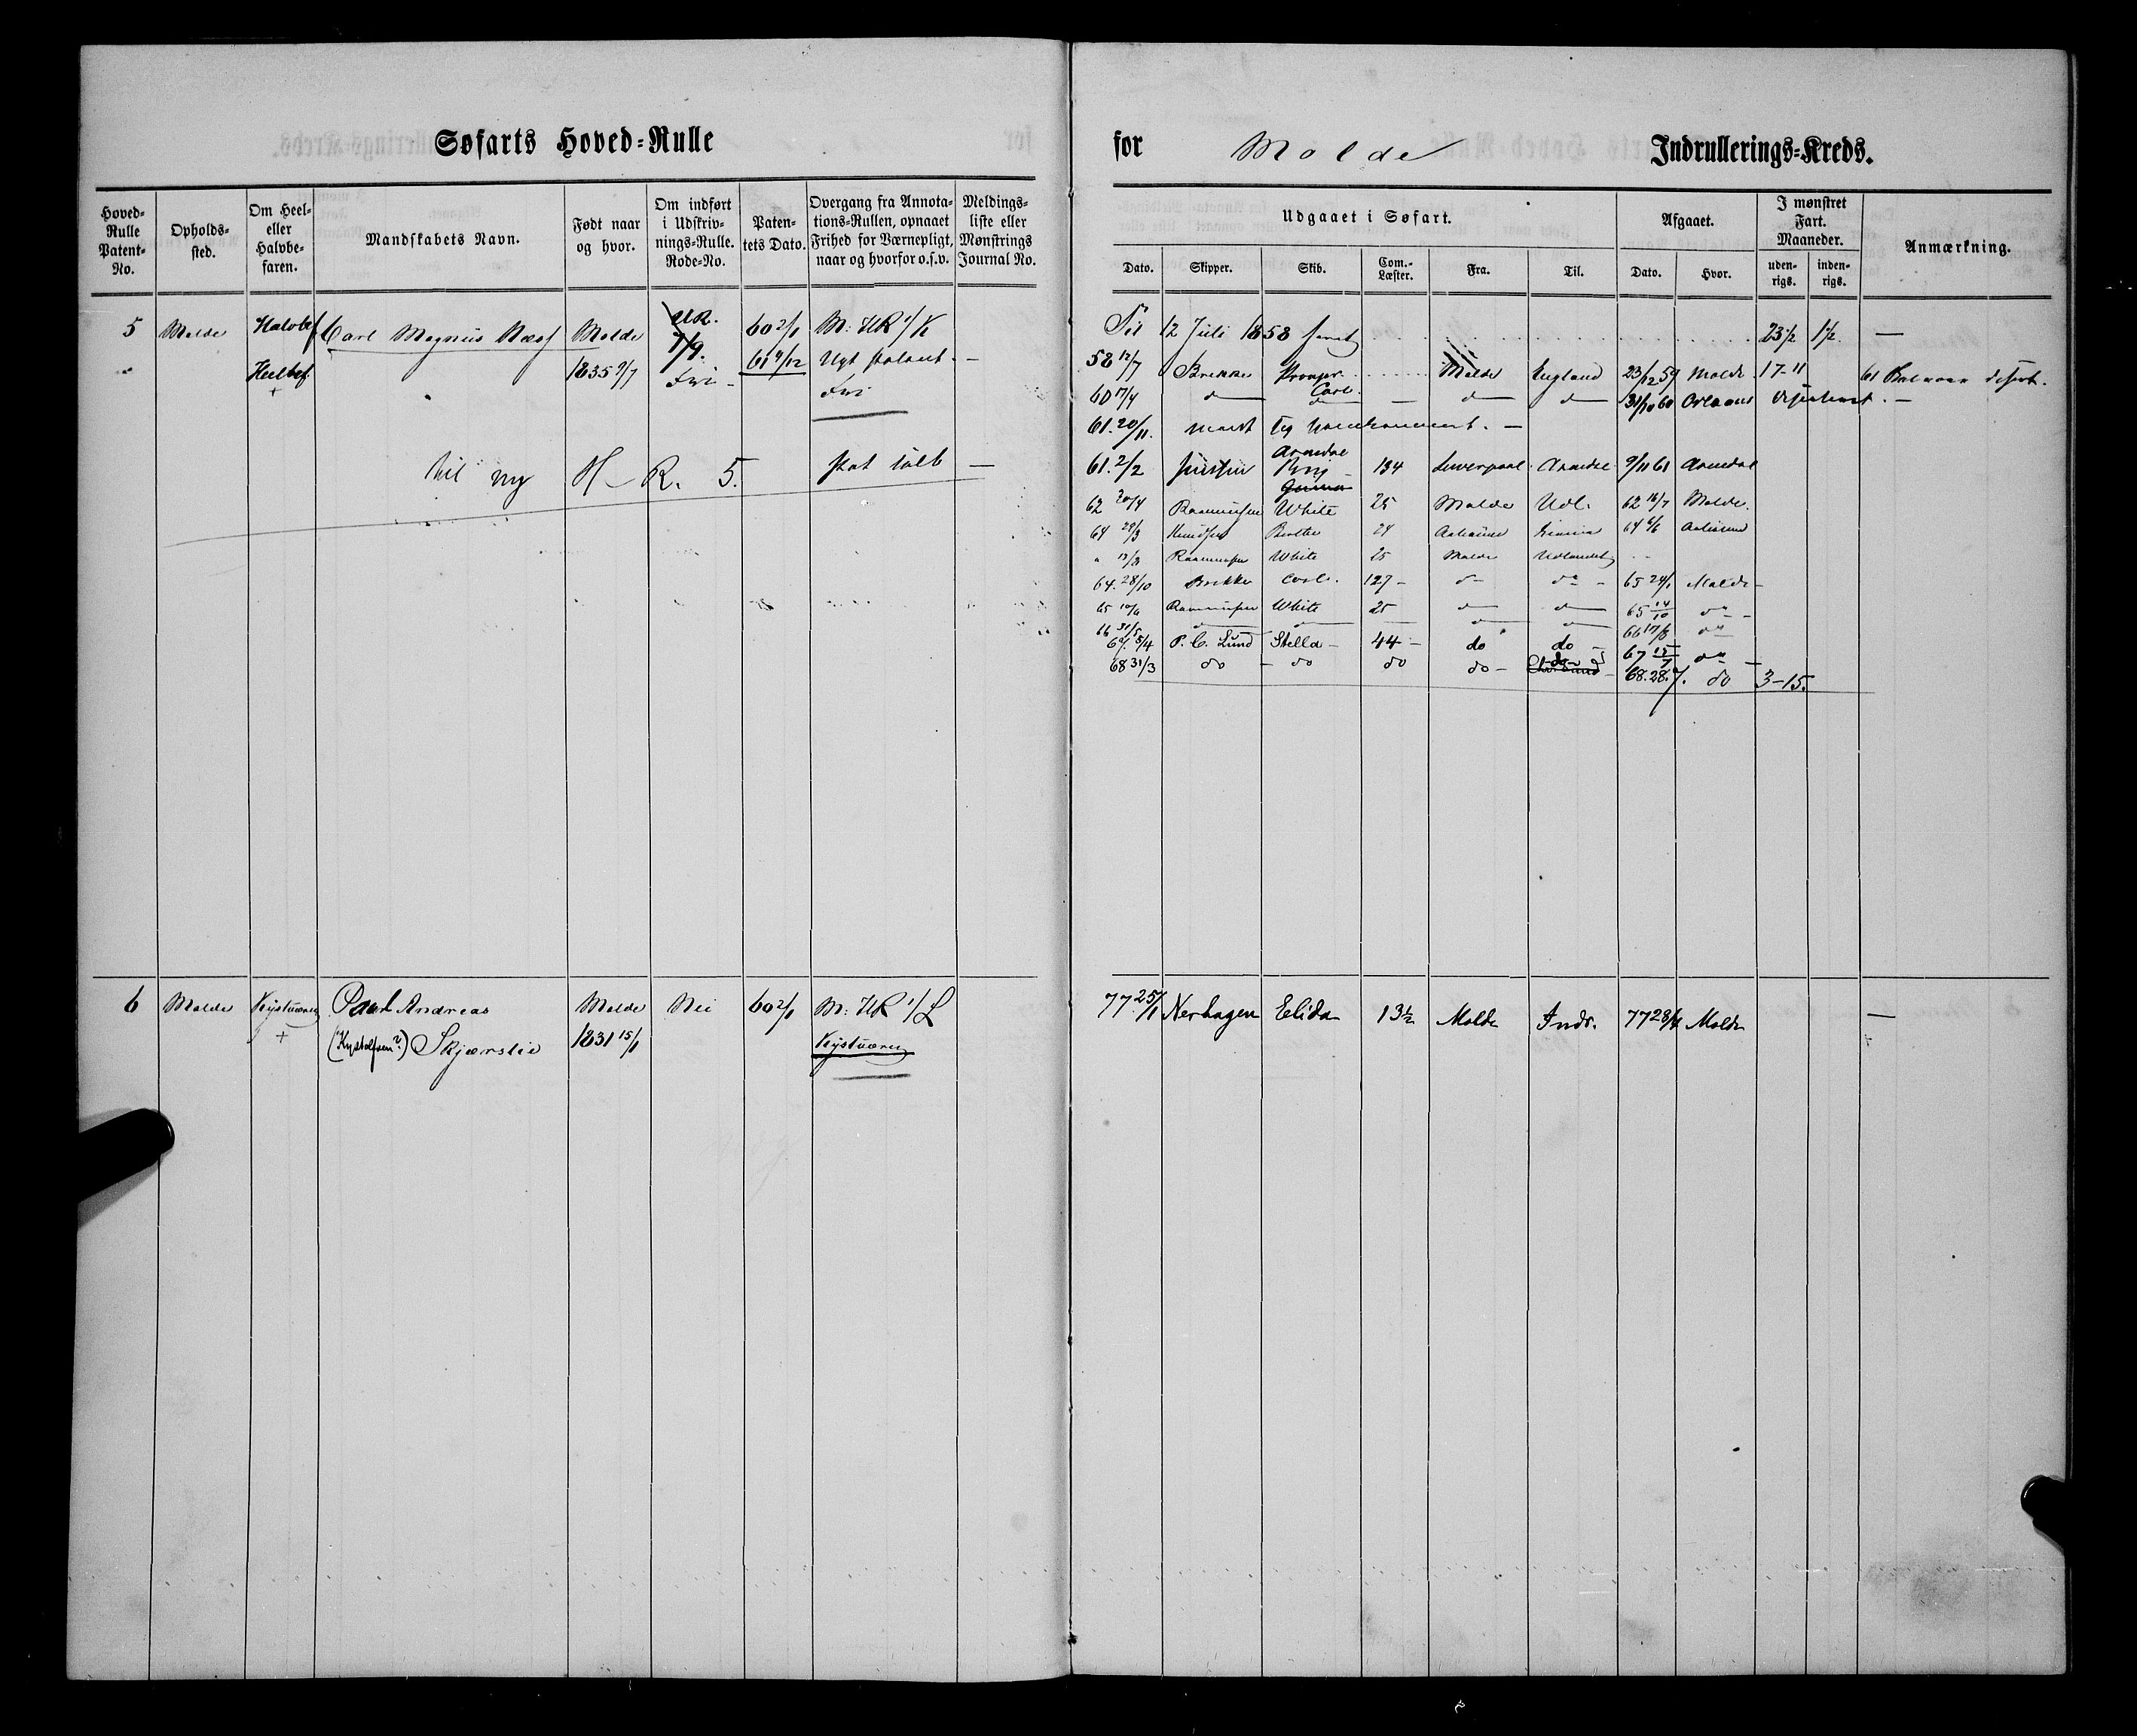 Søfarts Hoved-Rulle
for Molde Indrullerings-Kreds.
Hoved-Rulle Patent-No.
Opholds-sted.
Om Heel- eller Halvbe-faren.
Mandskabets Navn.
Født naar og hvor.
Om indført i Udskriv-nings-Rulle. Rode-No.
Paten-tets Dato.
Overgang fra Annota-tions-Rullen, opnaaet Frihed for Værnepligt, naar og hvorfor o.s.v.
Meldings-liste eller Mønstrings Journal No.
Udgaaet i Søfart.
Afgaaet.
I mønstret Fart. Maaneder.
Anmærkning.
Dato. Skipper. Skib. Com.-Læster. Fra. Til. Dato. Hvor. uden-rigs. inden-rigs.
5 Molde Halvbef Carl Magnus Næss Molde UR. 60 2/1 M: HR 1/K
" Heelbef. 1835 9/7 7/9. Fri - 61 4/12 Nyt patent. -
+ Fri
til ny H-R. 5. pat tilb -
Til 12 Juli 1858 faret 23 1/2 1 1/2 -
58 12/7 Brekke Prosper Molde England 23/12 59 Molde 17-11
60 17/4 d Carl d - d d 31/10 60 Orleans
61. 20/11.
61. 2/2 Arendal Brig 134 Liverpool Arendal 9/11 61 Arendal
62 20/4 Rasmussen White 25 Molde Udl. 62 16/7 Molde.
64 29/3 Knudsen 24 Aalesund 64 6/6 Aalesund
" 13/8 Rasmussen White 25 Molde Udlandet
64. 28/10 Brekke Carl. 127 - d- do - 65 24/1 Molde -
65 10/6 Rasmussen White 25 d d 65 14/10 do -
66 31/5 d d d d 66 17/8 do
67. 5/4 P. C. Lund Stella - 44 - do do - 67 13/7 do -
68 31/3 do - do do do - do 68. 28. 7. do 3-15.
6 Molde Kystværn Paul Andreas Molde Nei 60 2/1 M: HR 1/L
+ (Kystolfsen?) Skjærslie 1831 15/1 Kystværn
77 25/1 Nerhagen Elida 13 1/2 Molde Indr. 77 28/4 Molde -